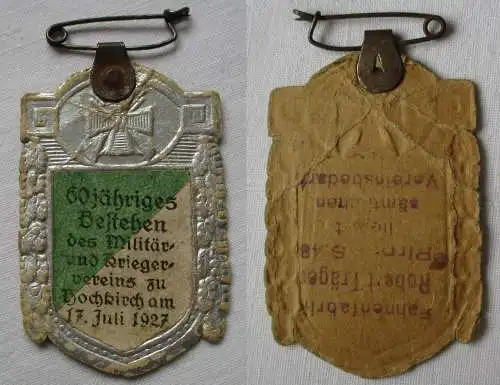 60jähriges
Bestehen
des Militär-
und Krieger-
vereins zu
Hochkirch am
17. Juli 1927
Fahnenfabrik
Robert Träger
liefert
sämtlichen
Vereinsbedarf